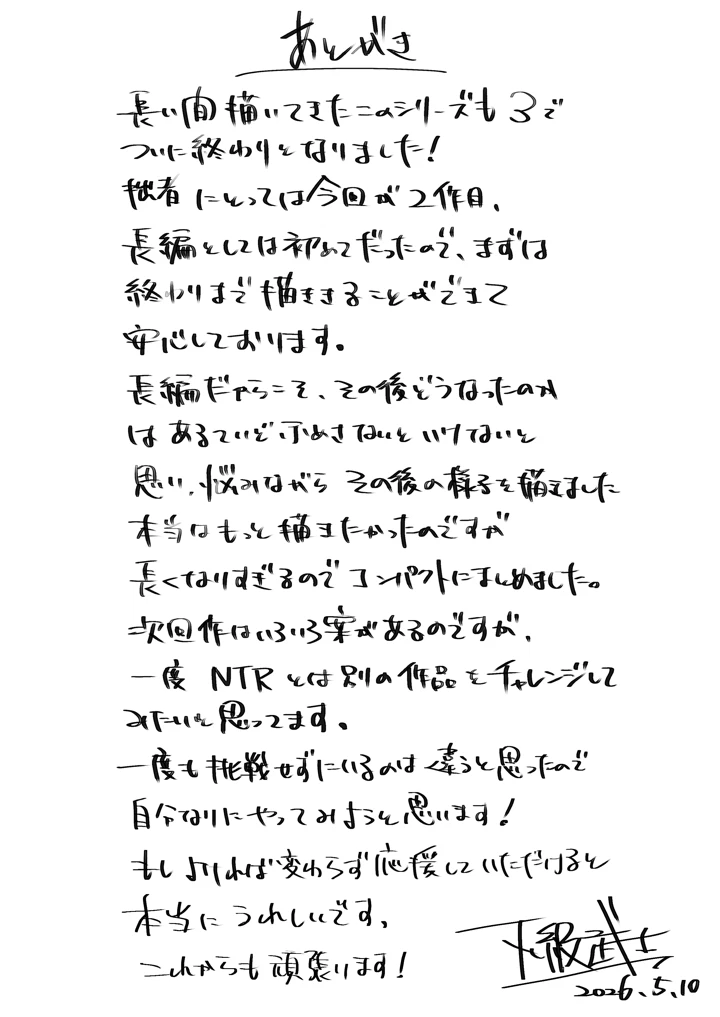 あとがき
長い間描いてきたこのシリーズも3で
ついに終わりとなりました！
拙者にとっては今回が2作目、
長編としては初めてだったので、まずは
終わりまで描ききることができて
安心しております。
長編だからこそ、その後どうなったのか
はあるていど示めさないといけないと
思い、悩みながらその後の様子を描きました
本当はもっと描きたかったのですが
長くなりすぎるのでコンパクトにまとめました。
次回作はいろいろ案があるのですが、
一度NTRとは別の作品をチャレンジして
みたいと思ってます。
一度も挑戦せずにいるのは違うと思ったので
自分なりにやってみようと思います！
もしよければ変わらず応援していただけると
本当にうれしいです。
これからも頑張ります！
下級武士
2026.5.10